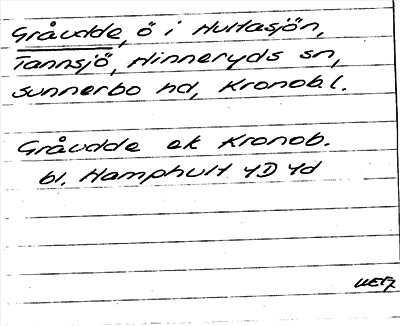 Gråudde, ö i Huttasjön,
Tannsjö, Hinneryds sn,
Sunnerbo hd, Kronob.l.
Gråudde ek Kronob.
bl. Hamphult 4D 4d